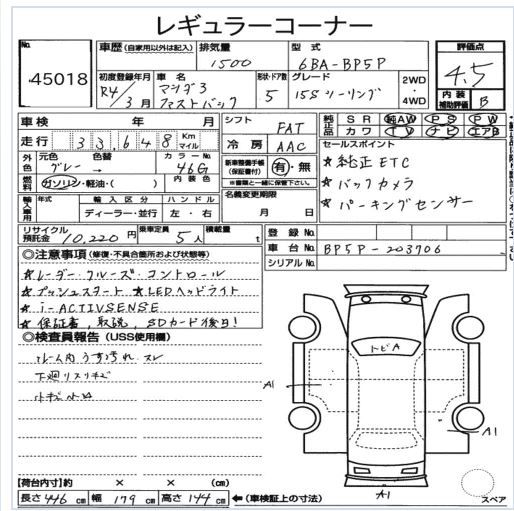 レギュラーコーナー
No. 45018
車歴 (自家用以外は記入) 排気量 1500 型式 6BA-BP5P
初度登録年月 R4/3月 車名 マツダ3 ファストバック 形状・ドア数 5 グレード 15S ツーリング 2WD・4WD
評価点 4.5
内装補助評価 B
車検 年 月 シフト FAT
走行 33,648 Km マイル 冷房 AAC
純正品 SR 純AW PS PW
カワ TV ナビ エアB
外色 元色 グレー 色替 → カラーNo. 46G
燃料 ガソリン・軽油・( ) 内装色
新車整備手帳(保証書付) 有・無
※書類と一緒に保管下さい。
セールスポイント
☆純正ETC
☆バックカメラ
☆パーキングセンサー
輸入車用 年式 輸入区分 ディーラー・並行 ハンドル 左・右
名義変更期限 月 日
リサイクル預託金 10,220円 乗車定員 5人 積載量 t
登録No.
車台No. BP5P-203706
シリアルNo.
◎注意事項 (修復・不具合箇所および状態等)
☆レーダークルーズコントロール
☆プッシュスタート ☆LEDヘッドライト
☆i-ACTIVSENSE
☆保証書,取説,SDカード後日!
◎検査員報告 (USS使用欄)
ルーム内うす汚れ スレ
下廻リスリキズ
小キズ小凹
トビA
A1
A1
A1
スペア
【荷台内寸】約 × × (cm)
長さ 446 cm 幅 179 cm 高さ 144 cm ←(車検証上の寸法)